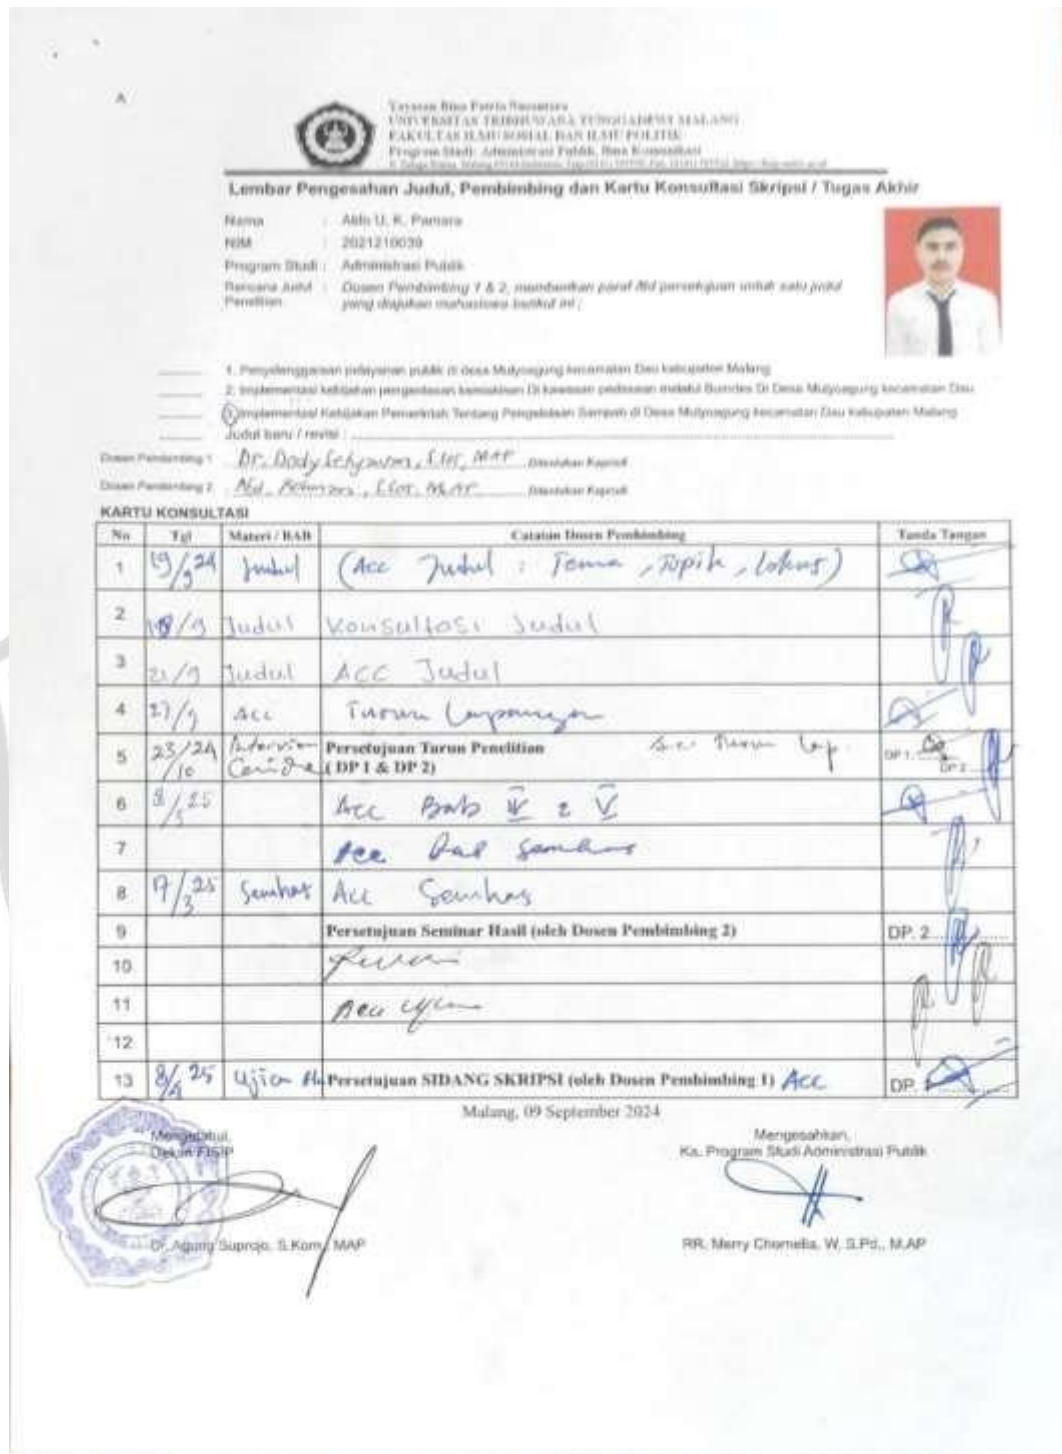 A
Yayasan Bina Patria Nusantara
UNIVERSITAS TRIBHUWANA TUNGGADEWI MALANG
FAKULTAS ILMU SOSIAL DAN ILMU POLITIK
Program Studi: Administrasi Publik, Ilmu Komunikasi
Lembar Pengesahan Judul, Pembimbing dan Kartu Konsultasi Skripsi / Tugas Akhir
Nama : Aldo U. K. Pamara
NIM : 2021210039
Program Studi : Administrasi Publik
Rencana Judul Penelitian : Dosen Pembimbing 1 & 2, memberikan paraf /ttd persetujuan untuk satu judul
yang diajukan mahasiswa berikut ini ;
1. Penyelenggaraan pelayanan publik di desa Mulyoagung kecamatan Dau kabupaten Malang
2. Implementasi kebijakan pengentasan kemiskinan Di kawasan pedesaan melalui Bumdes Di Desa Mulyoagung kecamatan Dau
3. Implementasi Kebijakan Pemerintah Tentang Pengelolaan Sampah di Desa Mulyoagung kecamatan Dau kabupaten Malang
Judul baru / revisi :
Dosen Pembimbing 1 Dr. Dody Setyawan, S.Sos, MAP Ditentukan Kaprodi
Dosen Pembimbing 2 Abd. Rohman, S.Sos, M.AP Ditentukan Kaprodi
KARTU KONSULTASI
No Tgl Materi / BAB Catatan Dosen Pembimbing Tanda Tangan
1 19/9 24 Judul (Acc Judul : Tema, Topik, Lokus)
2 18/9 Judul Konsultasi Judul
3 21/9 Judul ACC Judul
4 27/9 Acc Turun Lapangan
5 23/24 /10 Persetujuan Turun Penelitian Acc Turun Lap.
( DP 1 & DP 2) DP 1. DP 2
6 /25 Acc Bab IV & V
7 Acc
8 17/3 25 Semhas Acc Semhas
9 Persetujuan Seminar Hasil (oleh Dosen Pembimbing 2) DP. 2
10
11 Acc
12
13 8/ 25 Ujian Persetujuan SIDANG SKRIPSI (oleh Dosen Pembimbing 1) Acc DP. 1
Malang, 09 September 2024
Mengetahui, Mengesahkan,
Dekan FISIP Ka. Program Studi Administrasi Publik
Dr. Agung Suprojo, S.Kom, MAP RR. Merry Chornelia. W, S.Pd., M.AP